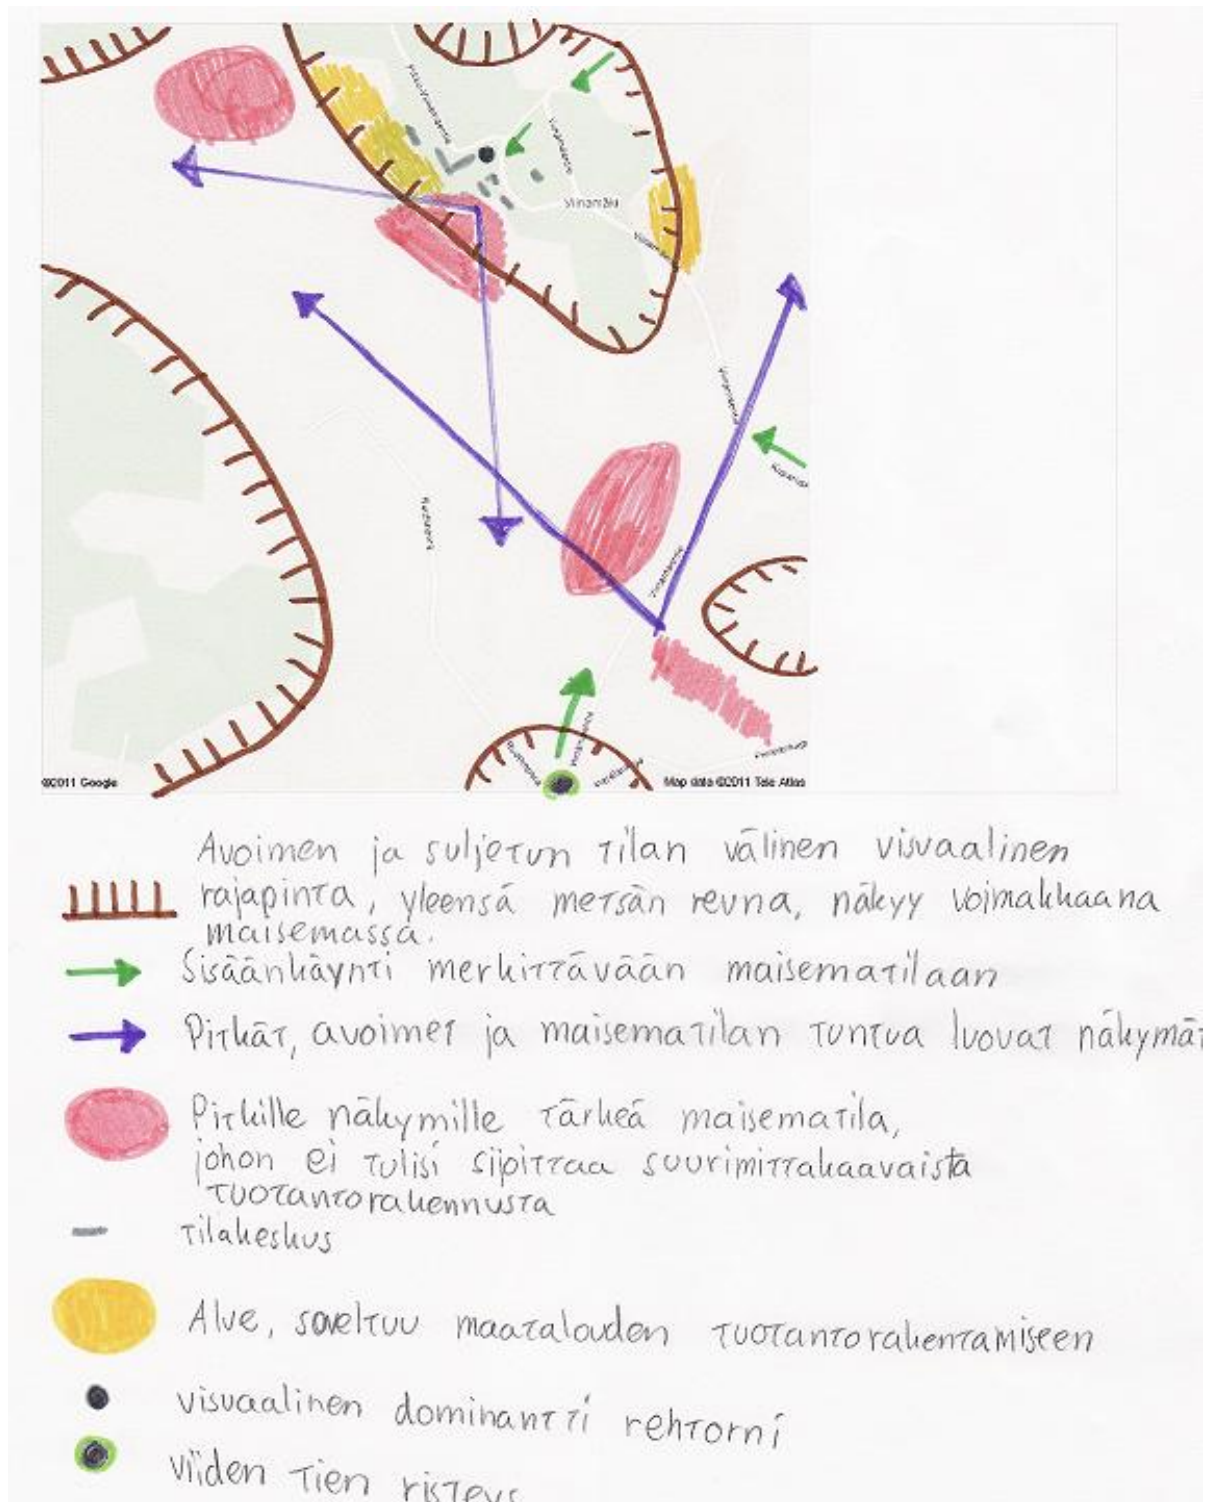 Viinamäki
©2011 Google
Map data ©2011 Tele Atlas
Avoimen ja suljetun tilan välinen visuaalinen
rajapinta, yleensä metsän reuna, näkyy voimakkaana
maisemassa.
Sisäänkäynti merkittävään maisematilaan
Pitkät, avoimet ja maisematilan tuntua luovat näkymät
Pitkille näkymille tärkeä maisematila,
johon ei tulisi sijoittaa suurimittakaavaista
tuotantorakennusta
tilakeskus
Alue, soveltuu maatalouden tuotantorakentamiseen
visuaalinen dominantti rehtorni
viiden tien risteys